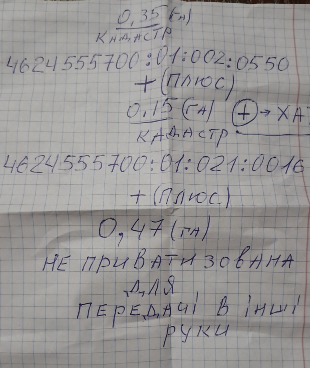 0,35 (га)
КАДАСТР
4624555700:01:002:0550
+ (ПЛЮС)
0,15 (ГА) + → ХАТ
КАДАСТР
4624555700:01:021:0016
+ (ПЛЮС)
0,47 (га)
НЕ ПРИВАТИЗОВАНА
ДЛЯ
ПЕРЕДАЧІ В ІНШІ
РУКИ